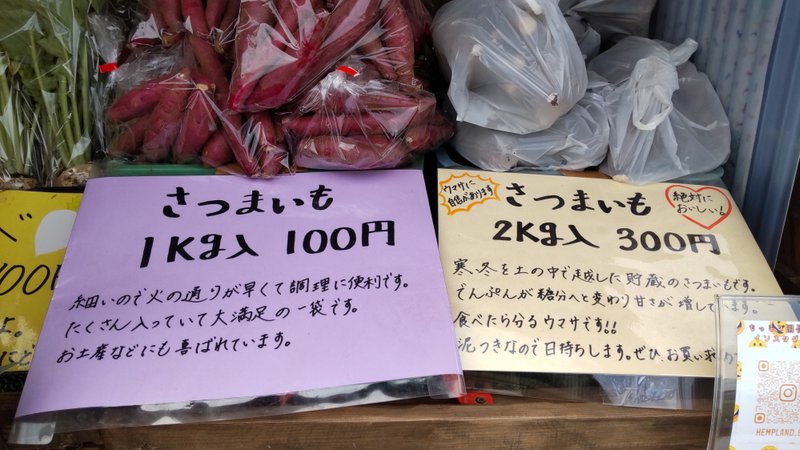 さつまいも
1Kg入 100円
細いので火の通りが早くて調理に便利です。
たくさん入っていて大満足の一袋です。
お土産などにも喜ばれています。
ウマサに
自信があります
さつまいも
絶対に
おいしい!
2Kg入 300円
寒い冬を土の中で越した貯蔵のさつまいもです。
でんぷんが糖分へと変わり甘さが増しています。
食べたら分るウマサです!!
泥つきなので日持ちします。ぜひ、お買い求め
べ
00円
よ。
HEMPLAND